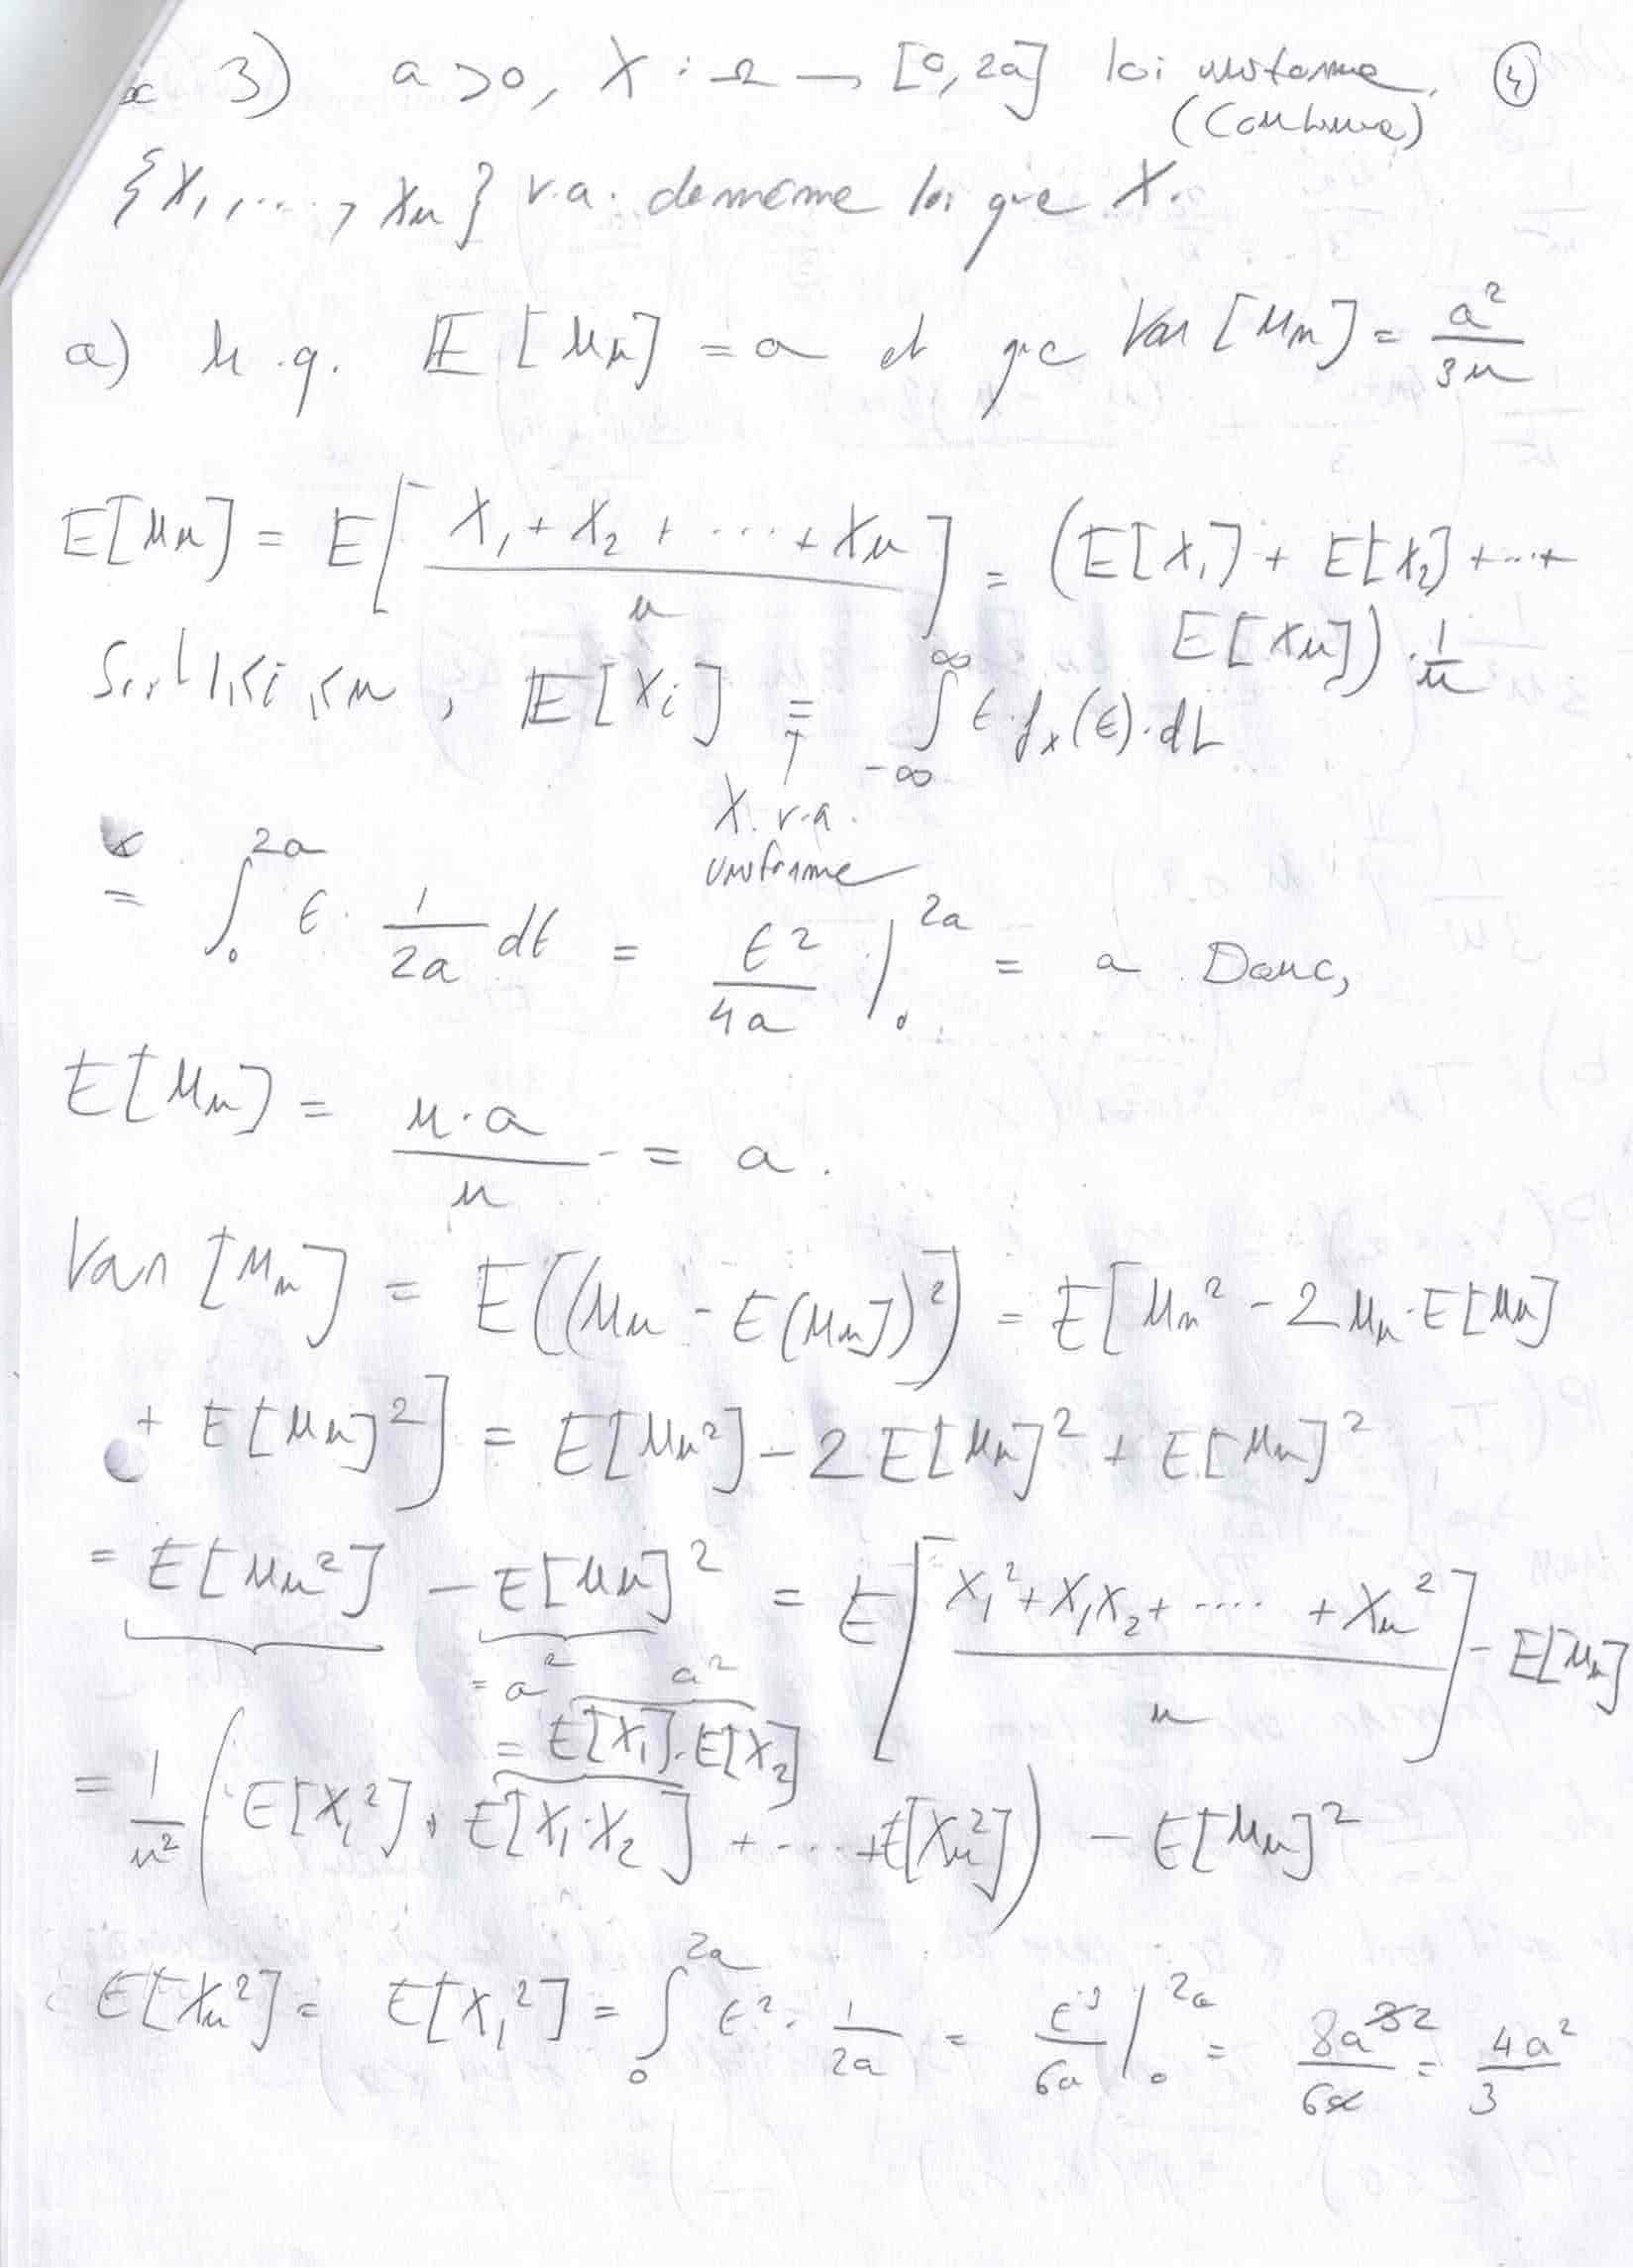 3) a > 0, X : Ω → [0, 2a] loi uniforme. ④
(Continue)
{X₁, ..., Xn} v.a. de même loi que X.
a) M.q. 𝔼[Mn] = a et que Var[Mn] = a²/3n
E[Mn] = E[(X₁ + X₂ + ... + Xn)/n] = (E[X₁] + E[X₂] + ... +
E[Xn]) · 1/n
Soit 1 ≤ i ≤ n, 𝔼[Xi] = ∫_{-∞}^{∞} t · f_X(t) · dt
↑
X v.a.
uniforme
= ∫₀^{2a} t · 1/2a dt = t²/4a |₀^{2a} = a Donc,
E[Mn] = n·a/n = a.
Var[Mn] = E[(Mn - E[Mn])²] = E[Mn² - 2Mn·E[Mn]
+ E[Mn]²] = E[Mn²] - 2E[Mn]² + E[Mn]²
= E[Mn²] - E[Mn]² = E[(X₁² + X₁X₂ + .... + Xn²)/n] - E[Mn]
= a² a²
= E[X₁]·E[X₂]
= 1/n² (E[X₁²] + E[X₁·X₂] + .... + E[Xn²]) - E[Mn]²
E[Xn²] = E[X₁²] = ∫₀^{2a} t² · 1/2a = t³/6a |₀^{2a} = 8a²/6 = 4a²/3